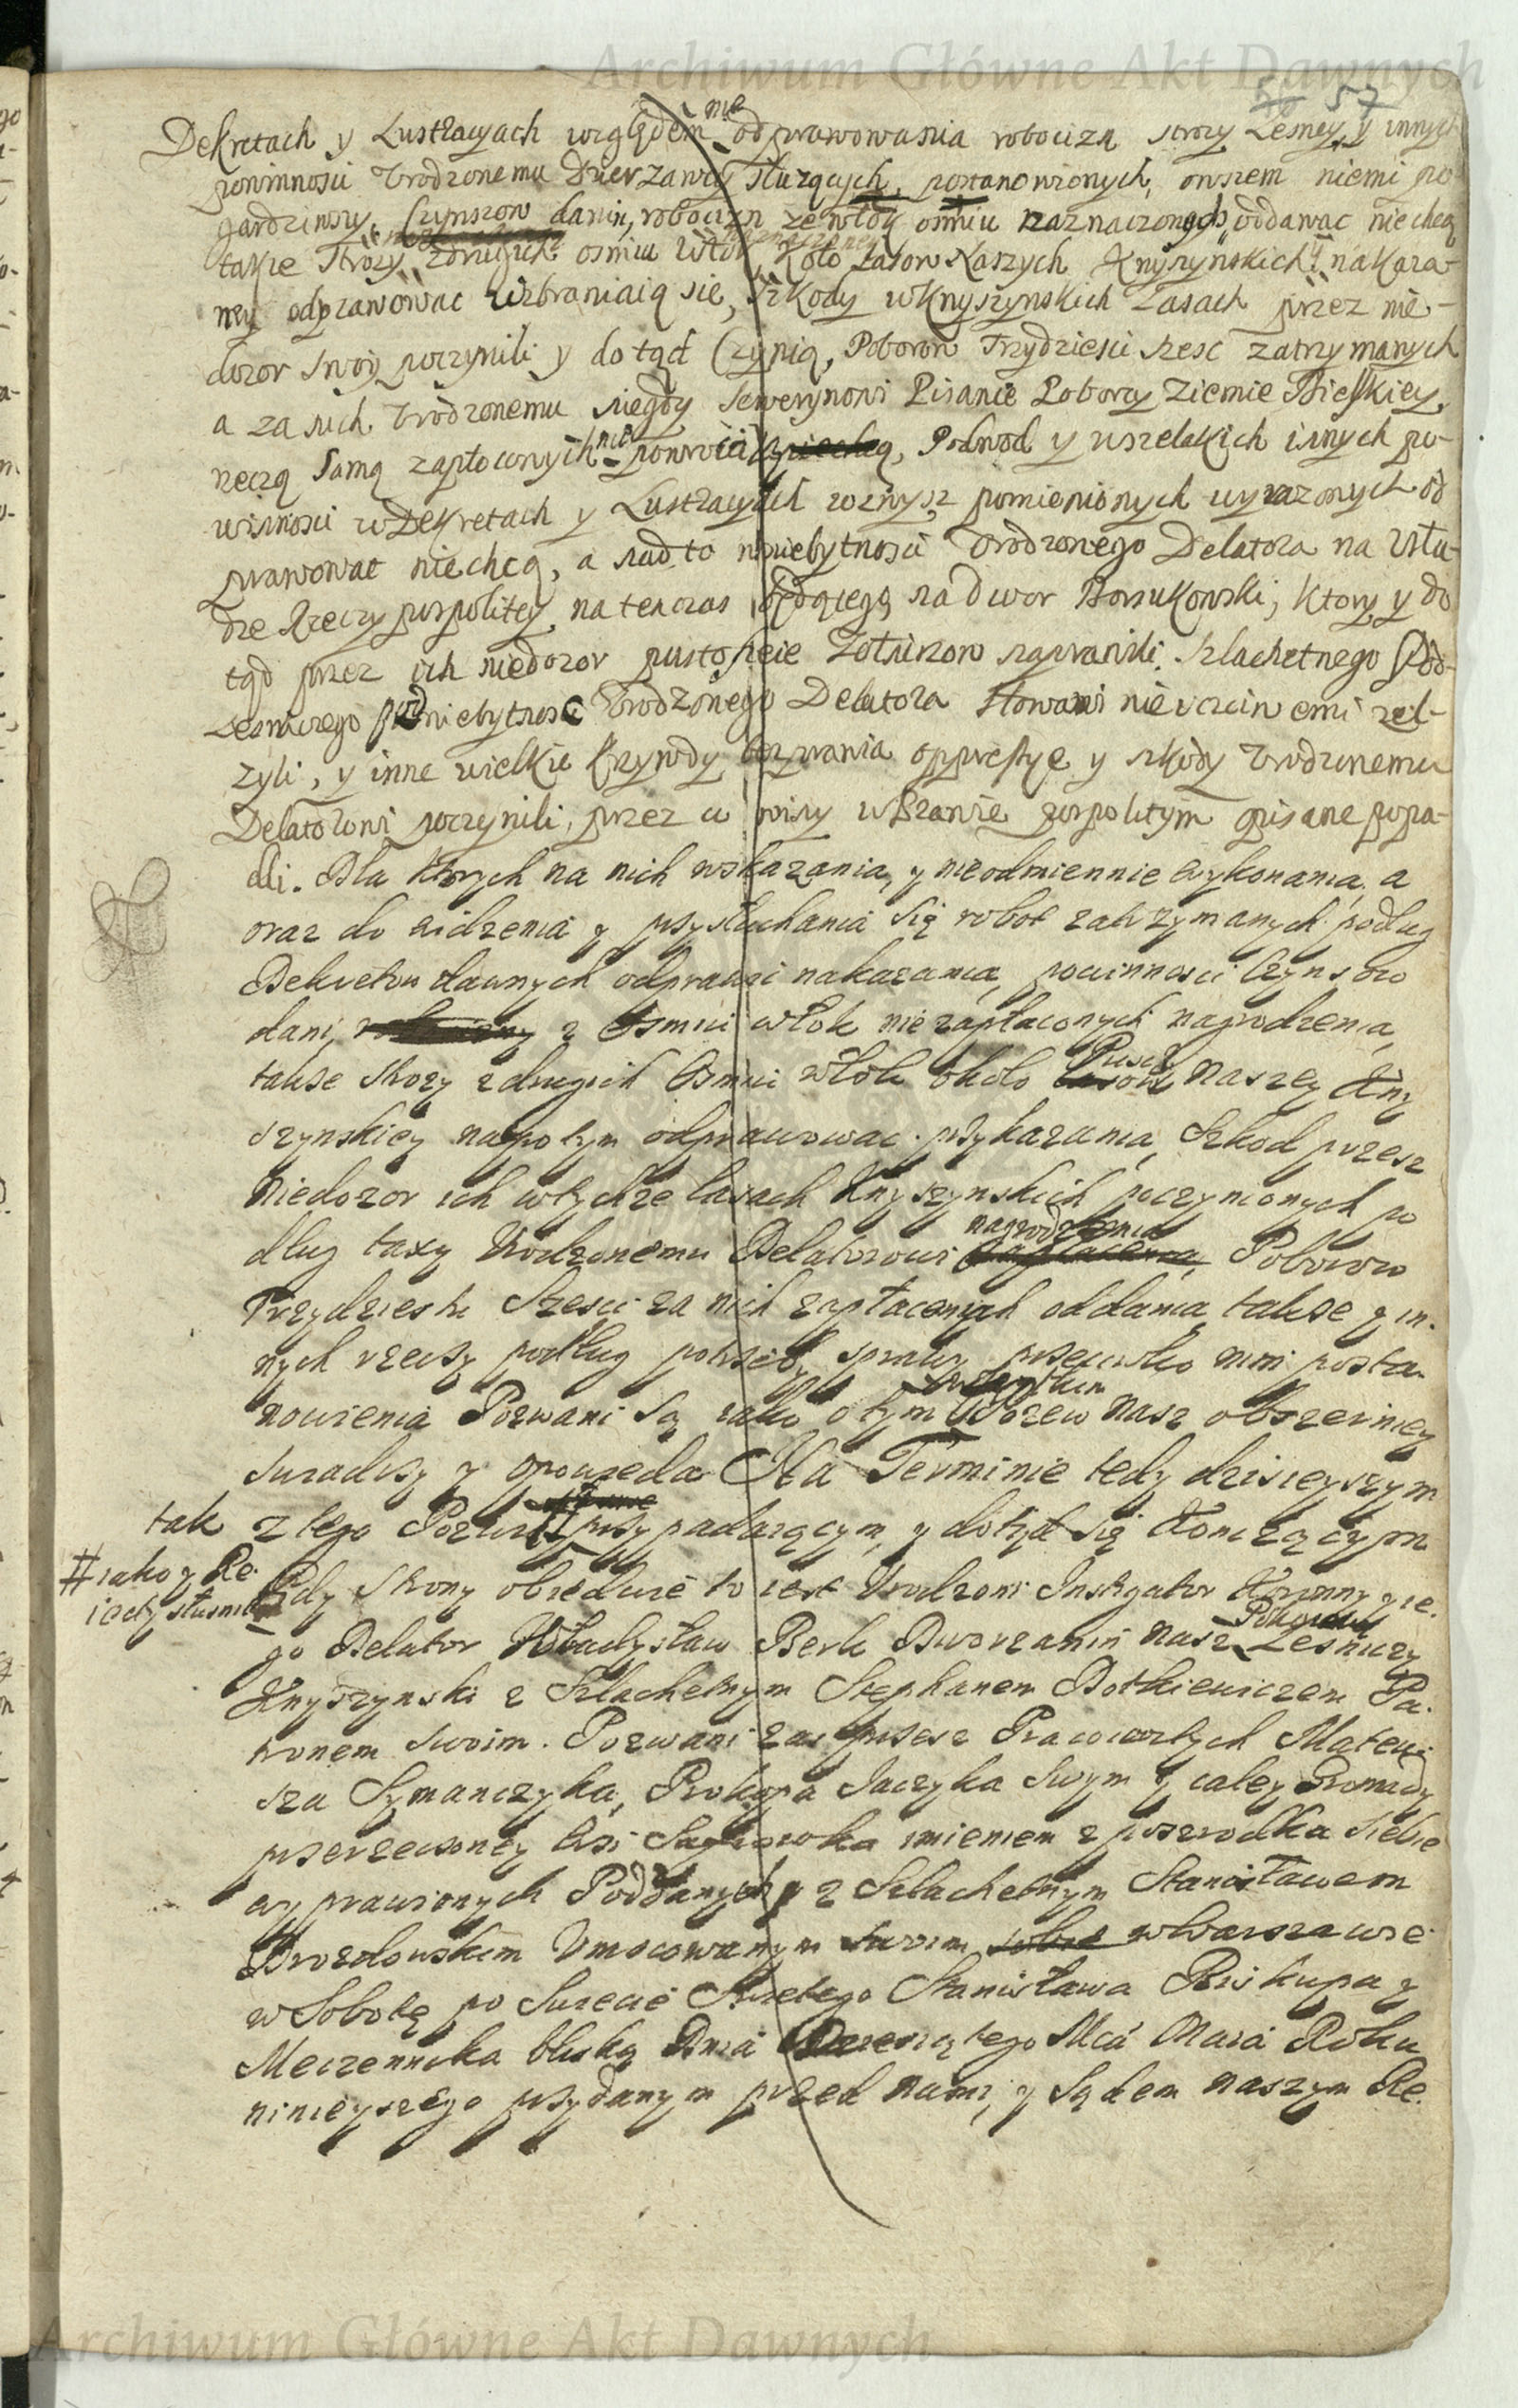 Archiwum Główne Akt Dawnych
57
Dekretach y Lustracyach względem nie odprawowania robocizn strozy Lesney, y innych
powinnosci Urodzonemu Dzierzawcy słuzących, postanowionych, owszem niemi po
gardziwszy, Czynszow danin, robocizn ze włok osmiu naznaczonych, oddawac niechcą
takze Strozy zdrugich osmiu Włok, koło Lasow Naszych Knyszynskich nakaza-
ney odprawowac wzbraniaią się, szkody w Knyszynskich Lasach przez nie-
dozor swoy poczynili y dotąd Czynią, Poborow Trzydziesci szesc zatrzymanych
a za nich Urodzonemu niegdy Sewerynowi Pisance Poborcy Ziemie Bielskiey
reczą samą zapłoconych nie powrocili, Podwod y wszelakich innych po-
winnosci w Dekretach y Lustracyach wzwysz pomienionych wyrazonych od
prawowac niechcą, a nad to w niebytnosci Urodzonego Delatora na Usłu-
dze Rzeczy pospolitey, na tenczas będącego, na dwor Borsukowski, ktory y do
tąd przez ich niedozor pustoszeie Zołnierzow naprawili, Szlachetnego Pod-
Lesniczego pod niebytnosc Urodzonego Delatora słowami nieuczciwemi zel-
zyli, y inne wielkie krzywdy bezprawia oppressye y szkody Urodzonemu
Delatorowi poczynili, przez co winy w Prawie pospolitym opisane popa-
dli. Dla ktorych na nich wskazania, y nieodmiennie wykonania, a
oraz do widzenia y przysłuchania się robot zatrzymanych podług
Dekretow dawnych odprawić nakazania, powinnosci Czynszow
dani, z Osmiu włok niezapłaconych nagrodzenia,
takze strozy z drugich Osmiu włok około Puscz naszey Kny
szynskiey napotym odprawowac przykazania, Szkod przesz
niedozor ich wtychze lasach Knyszynskich poczynionych po
dług taxy Urodzonemu Delatorowi nagrodzenia, Poborow
Trzydziestu Szesci za nich zapłaconych oddania, takze y in-
nych rzeczy podług potrzeby sprawy przeciwko nim posta-
nowienia Pozwani są iako o tym Pozew nasz obszerniey
swiadczy y opowieda Na Terminie tedy dzisieyszym
tak z tego Pozwu przypadaiącym, y dotąd się Konczącym
# iako y Re-
iedy słusznie
gdy Strony obiedwie to iest Urodzoni Instygator Koronny y ie-
go Delator Władysław Berk Dworzanin nasz Lesniczy
Knyszynski z Szlachetnym Stephanem Botkiewiczem Pa-
tronem swoim. Pozwani zas przesz Pracowitych Mateu-
sza Symanczyka, Prokopa Jaczyka swym y całey Gromady
przerzeczoney Wsi imieniem z poszrodka siebie
wyprawionych Poddanych y z Szlachetnym Stanisławem
Drozdowskim Umocowanym swoim w Warszawie
w Sobotę po Swięcie Swiętego Stanisława Biskupa y
Meczennika bliską Dnia Dziesiątego Mca Maia Roku
ninieyszego przydanym przed nami, y Sądem naszym Re-
Archiwum Główne Akt Dawnych